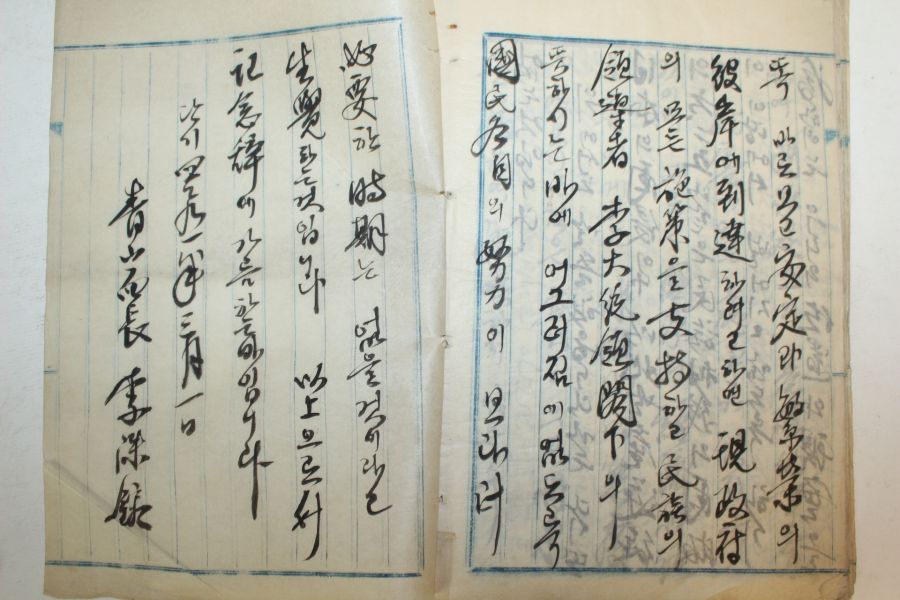 똑 바로보고 安定과 繁榮의
彼岸에到達하려고하면 現政府
의 모든 施策을支持하고 民族의
領導者 李大統領閣下의
뜻하시는바에 어그러짐이없도록
國民各自의 努力이 보다더
必要한 時期는 없을것이라고
生覺하는것입니다 以上으로서
記念辭에 가름하는바입니다
단기 四二九一年三月一日
青山面長 李